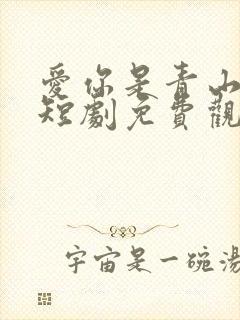 愛你是青山
短劇免費觀
宇宙是一碗湯